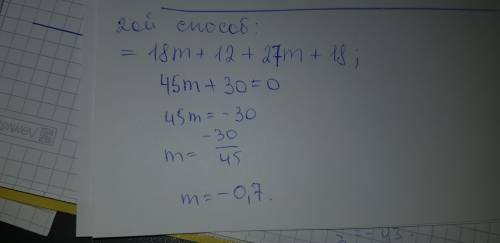 2ой способ:
= 18m + 12 + 27m + 18;
45m + 30 = 0
45m = -30
m = -30/45
m = -0,7.